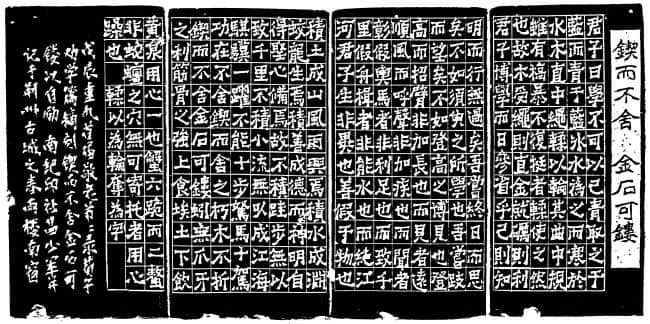 鍥而不舍 金石可鏤
君子曰學不可以已青取之于
藍而青于藍冰水為之而寒於
水木直中繩輮以為輪其曲中規
雖有槁暴不復挺者輮使之然
也故木受繩則直金就礪則利
君子博學而日參省乎己則知
明而行無過矣吾嘗終日而思
矣不如須臾之所學也吾嘗跂
而望矣不如登高之博見也登
高而招臂非加長也而見者遠
順風而呼聲非加疾也而聞者
彰假輿馬者非利足也而致千
里假舟楫者非能水也而絕江
河君子生非異也善假于物也
積土成山風雨興焉積水成淵
蛟龍生焉積善成德而神明自
得聖心備焉故不積跬步無以
致千里不積小流無以成江海
騏驥一躍不能十步駑馬十駕
功在不舍鍥而舍之朽木不折
鍥而不舍金石可鏤蚓無爪牙
之利筋骨之強上食埃土下飲
黃泉用心一也蟹六跪而二螯
非蛇蟺之穴無可寄托者用心
躁也 輮以為輪奪為字
戊辰重九
篇 刻鍥而不舍金石可
鏤以自勵 南紀印社
記于荊州古城之春雨樓南窗